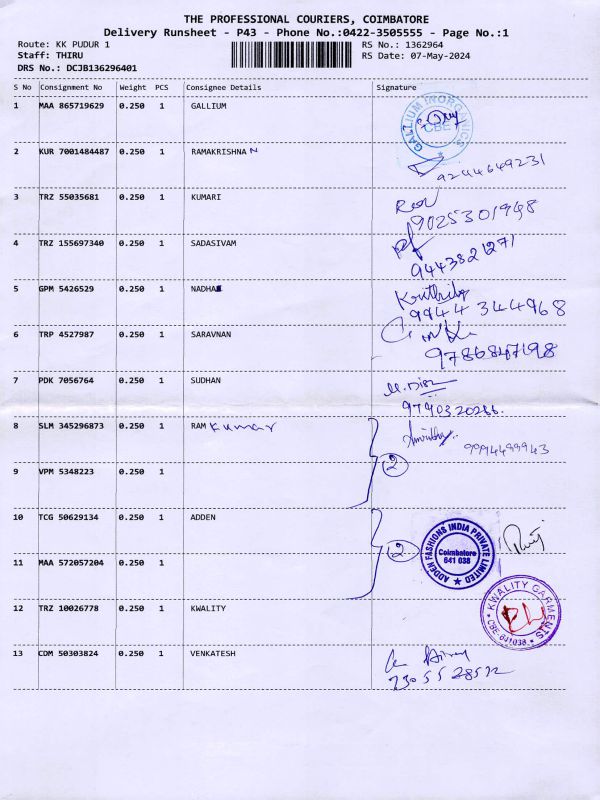 THE PROFESSIONAL COURIERS, COIMBATORE
Delivery Runsheet - P43 - Phone No.:0422-3505555 - Page No.:1
Route: KK PUDUR 1 RS No.: 1362964
Staff: THIRU RS Date: 07-May-2024
DRS No.: DCJB136296401
S No Consignment No Weight PCS Consignee Details Signature
1 MAA 865719629 0.250 1 GALLIUM
GALLIUM INORGANICS CBE
2 KUR 7001484487 0.250 1 RAMAKRISHNAN
9244649231
3 TRZ 55035681 0.250 1 KUMARI
9025301948
4 TRZ 155697340 0.250 1 SADASIVAM
9443821271
5 GPM 5426529 0.250 1 NADHA
9944344968
6 TRP 4527987 0.250 1 SARAVNAN
9786847198
7 PDK 7056764 0.250 1 SUDHAN
9790320286.
8 SLM 345296873 0.250 1 RAM Kumar
9994499943
9 VPM 5348223 0.250 1
2
10 TCG 50629134 0.250 1 ADDEN
2
ADDEN FASHIONS INDIA PRIVATE LIMITED
Coimbatore
641 038
11 MAA 572057204 0.250 1
12 TRZ 10026778 0.250 1 KWALITY
KWALITY GARMENTS
CBE-641038.
13 CDM 50303824 0.250 1 VENKATESH